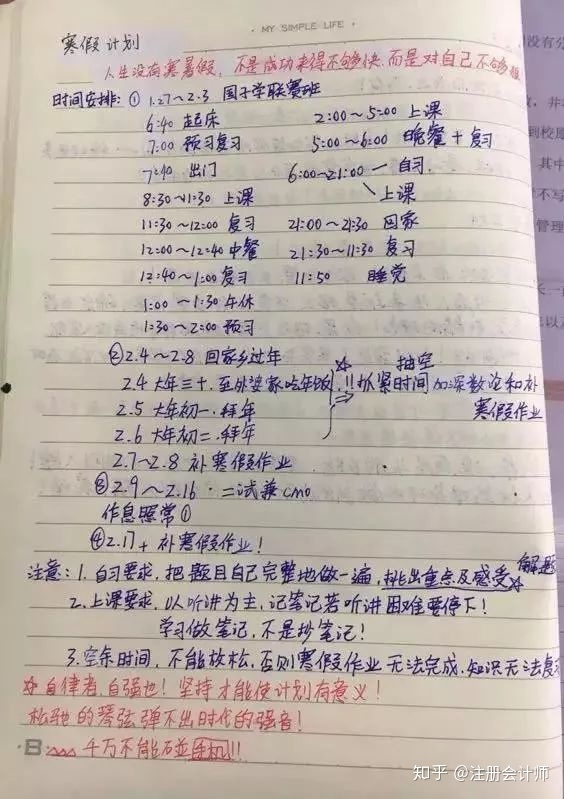 · MY SIMPLE LIFE ·
寒假计划
人生没有寒暑假，不是成功来得不够快，而是对自己不够狠
时间安排：① 1.27～2.3 国子学联赛班
6:40 起床 2:00～5:00 上课
7:00 预习复习 5:00～6:00 晚餐+复习
7:40 出门 6:00~21:00 自习
上课
8:30~11:30 上课
11:30~12:00 复习 21:00~21:30 回家
12:00~12:40 中餐 21:30~11:30 复习
12:40~1:00 复习 11:50 睡觉
1:00~1:30 午休
1:30~2:00 预习
② 2.4~2.8 回家乡过年
2.4 大年三十，至外婆家吃年饭
☆ 抽空
!! 抓紧时间 加深数论和补
寒假作业
2.5 大年初一，拜年
2.6 大年初二，拜年
2.7~2.8 补寒假作业
③ 2.9~2.16 · 二试兼cmo
作息照常①
④ 2.17+ 补寒假作业！
注意：1. 自习要求，把题目自己完整地做一遍，挑出重点及感受☆ 解题
2. 上课要求，以听讲为主，记笔记若听讲困难要停下！
学习做笔记，不是抄笔记！
3. 空余时间，不能放松，否则寒假作业无法完成，知识无法复
☆ 自律者，自强也！坚持才能使计划有意义！
松弛的琴弦弹不出时代的强音！
B: 千万不能碰手机!!
没有分
，并
到校
其中
不写
管理
长一
以
知乎 @注册会计师